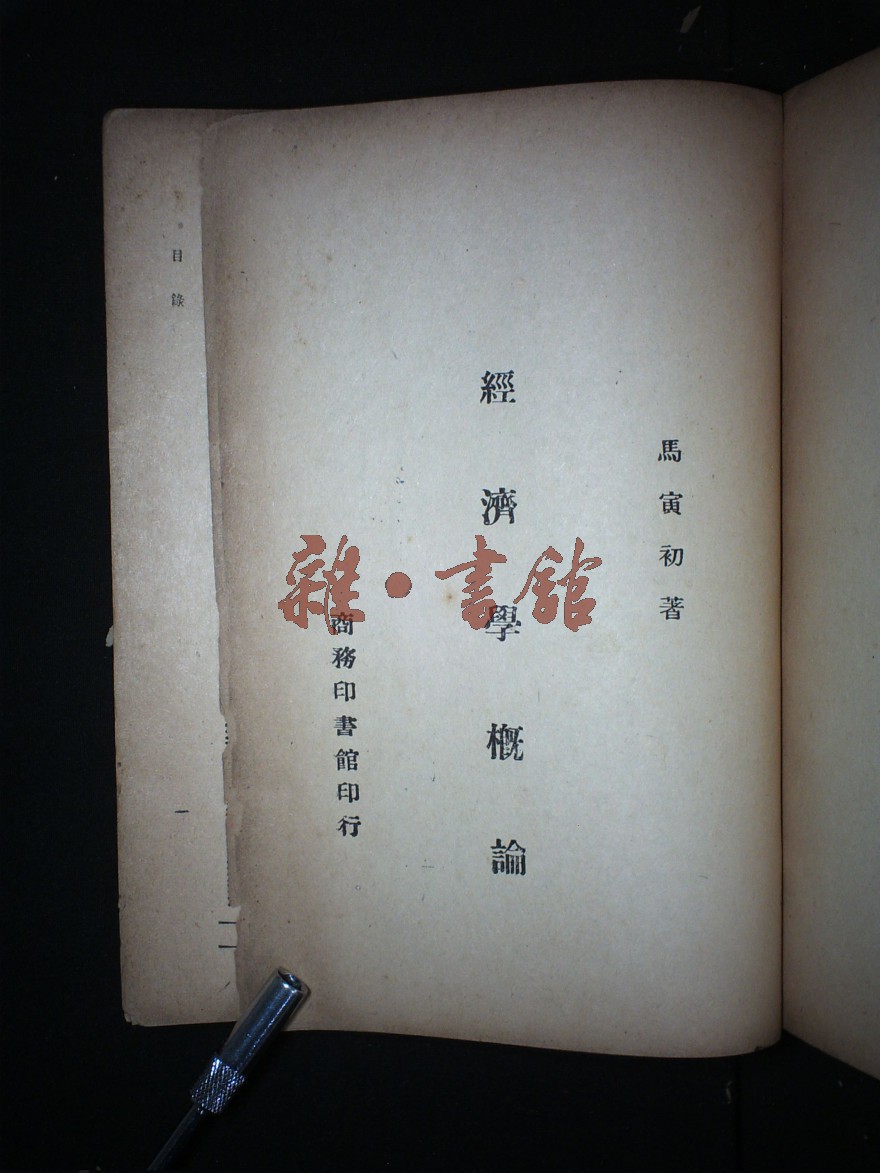 馬寅初著
經濟學概論
商務印書館印行
雜•書館
目錄
一